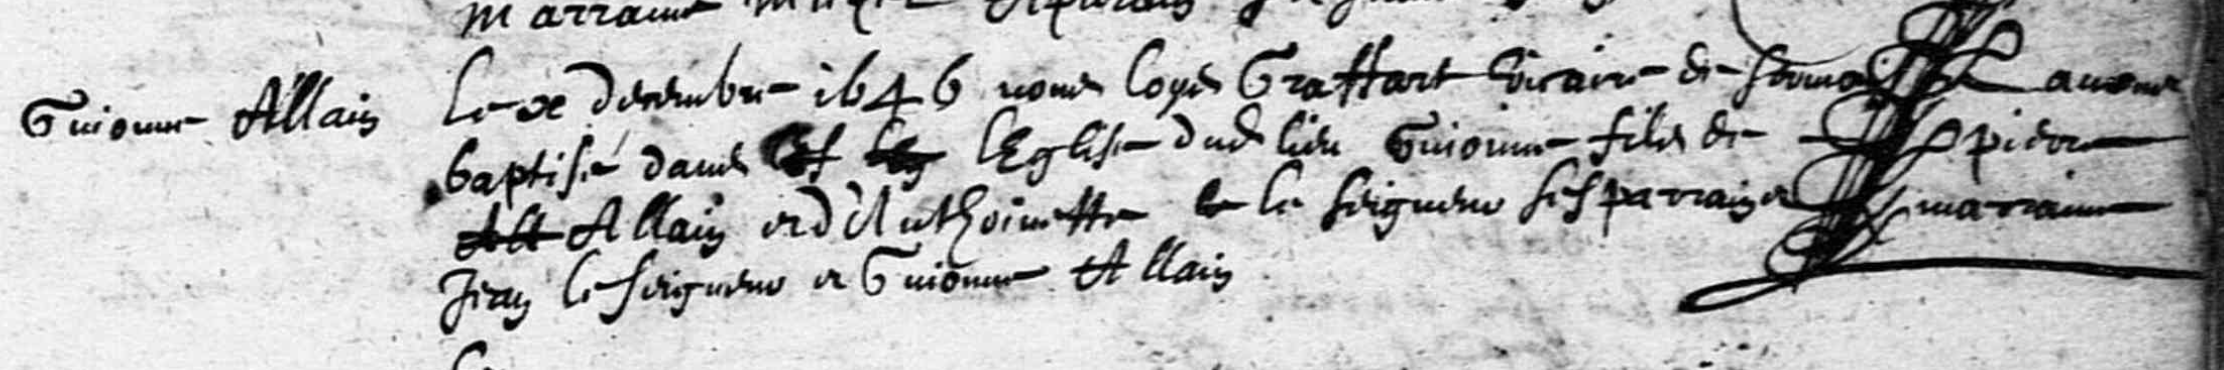 marraine
Guionne Allain
Le xe decembre 1646 nous Loys Graffart vicaire de avons
baptisé dans lEglise dud lieu Guionne fille de pierre
Allain et dAnthoinette le seigneur ses parrain et marraine
Jean le seigneur et Guionne Allain